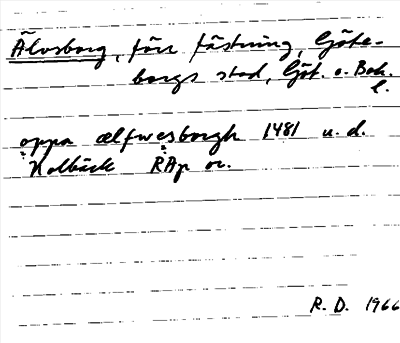 Älvsborg, förr fästning, Göte-
borgs stad, Göt. o. Boh.
l.
oppa ælfwesborgh 1481 u.d.
Kolbäck RAp or.
R. D. 1966